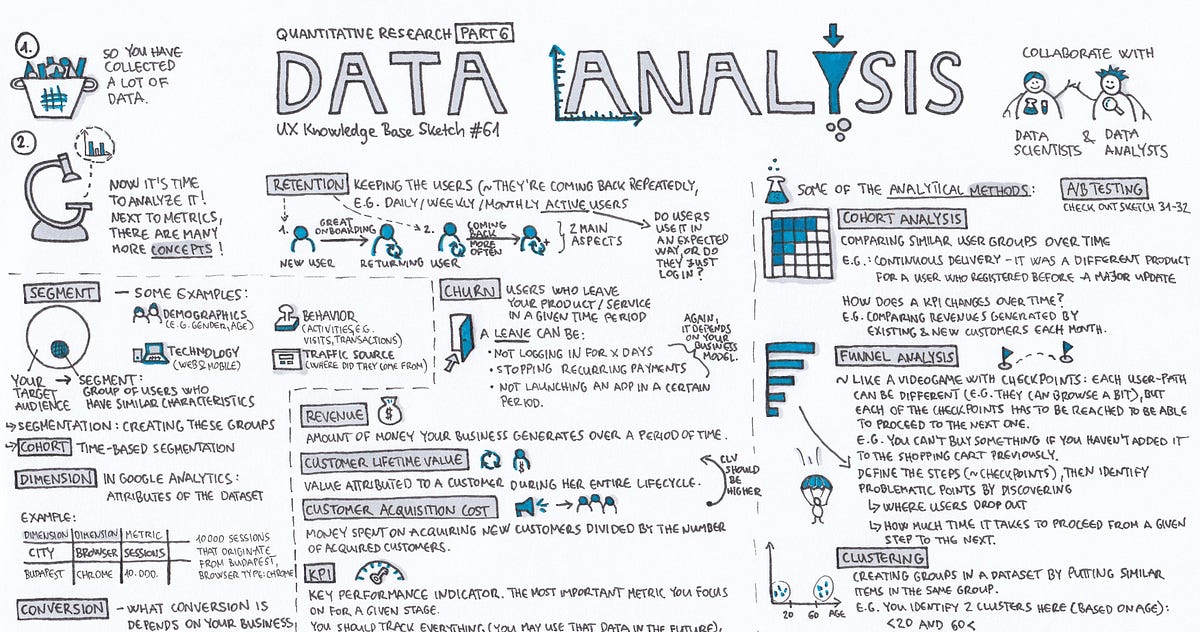 QUANTITATIVE RESEARCH PART 6
DATA ANALYSIS
UX Knowledge Base Sketch #61
1.
SO YOU HAVE
COLLECTED
A LOT OF
DATA.
2.
NOW IT'S TIME
TO ANALYZE IT!
NEXT TO METRICS,
THERE ARE MANY
MORE CONCEPTS!
COLLABORATE WITH
DATA SCIENTISTS & DATA ANALYSTS
RETENTION KEEPING THE USERS (~THEY'RE COMING BACK REPEATEDLY,
E.G. DAILY/WEEKLY/MONTHLY ACTIVE USERS
1. GREAT ONBOARDING
NEW USER
RETURNING USER
2. COMING BACK MORE OFTEN
2 MAIN
ASPECTS
DO USERS
USE IT IN
AN EXPECTED
WAY, OR DO
THEY JUST
LOGIN?
SEGMENT — SOME EXAMPLES:
DEMOGRAPHICS
(E.G. GENDER, AGE)
TECHNOLOGY
(WEB & MOBILE)
BEHAVIOR
(ACTIVITIES, E.G.
VISITS, TRANSACTIONS)
TRAFFIC SOURCE
(WHERE DID THEY COME FROM)
YOUR
TARGET
AUDIENCE
→ SEGMENT:
GROUP OF USERS WHO
HAVE SIMILAR CHARACTERISTICS
→ SEGMENTATION: CREATING THESE GROUPS
→ COHORT TIME-BASED SEGMENTATION
DIMENSION IN GOOGLE ANALYTICS:
ATTRIBUTES OF THE DATASET
EXAMPLE:
DIMENSION DIMENSION METRIC
CITY BROWSER SESSIONS
BUDAPEST CHROME 10.000.
10000 SESSIONS
THAT ORIGINATE
FROM BUDAPEST,
BROWSER TYPE: CHROME
CONVERSION - WHAT CONVERSION IS
DEPENDS ON YOUR BUSINESS,
CHURN USERS WHO LEAVE
YOUR PRODUCT/SERVICE
IN A GIVEN TIME PERIOD
A LEAVE CAN BE:
• NOT LOGGING IN FOR X DAYS
• STOPPING RECURRING PAYMENTS
• NOT LAUNCHING AN APP IN A CERTAIN
PERIOD.
AGAIN,
IT DEPENDS
ON YOUR
BUSINESS
MODEL.
REVENUE
AMOUNT OF MONEY YOUR BUSINESS GENERATES OVER A PERIOD OF TIME.
CUSTOMER LIFETIME VALUE
VALUE ATTRIBUTED TO A CUSTOMER DURING HER ENTIRE LIFECYCLE.
CLV
SHOULD
BE
HIGHER
CUSTOMER ACQUISITION COST
MONEY SPENT ON ACQUIRING NEW CUSTOMERS DIVIDED BY THE NUMBER
OF ACQUIRED CUSTOMERS.
KPI
KEY PERFORMANCE INDICATOR. THE MOST IMPORTANT METRIC YOU FOCUS
ON FOR A GIVEN STAGE.
YOU SHOULD TRACK EVERYTHING (YOU MAY USE THAT DATA IN THE FUTURE),
SOME OF THE ANALYTICAL METHODS:
A/B TESTING
CHECK OUT SKETCH 31-32
COHORT ANALYSIS
COMPARING SIMILAR USER GROUPS OVER TIME
E.G.: CONTINUOUS DELIVERY - IT WAS A DIFFERENT PRODUCT
FOR A USER WHO REGISTERED BEFORE A MAJOR UPDATE
HOW DOES A KPI CHANGES OVER TIME?
E.G. COMPARING REVENUES GENERATED BY
EXISTING & NEW CUSTOMERS EACH MONTH.
FUNNEL ANALYSIS
~ LIKE A VIDEOGAME WITH CHECKPOINTS: EACH USER-PATH
CAN BE DIFFERENT (E.G. THEY CAN BROWSE A BIT), BUT
EACH OF THE CHECKPOINTS HAS TO BE REACHED TO BE ABLE
TO PROCEED TO THE NEXT ONE.
E.G. YOU CAN'T BUY SOMETHING IF YOU HAVEN'T ADDED IT
TO THE SHOPPING CART PREVIOUSLY.
DEFINE THE STEPS (~CHECKPOINTS), THEN IDENTIFY
PROBLEMATIC POINTS BY DISCOVERING
↳ WHERE USERS DROP OUT
↳ HOW MUCH TIME IT TAKES TO PROCEED FROM A GIVEN
STEP TO THE NEXT.
CLUSTERING
CREATING GROUPS IN A DATASET BY PUTTING SIMILAR
ITEMS IN THE SAME GROUP.
E.G. YOU IDENTIFY 2 CLUSTERS HERE (BASED ON AGE):
<20 AND 60<
20 60 AGE